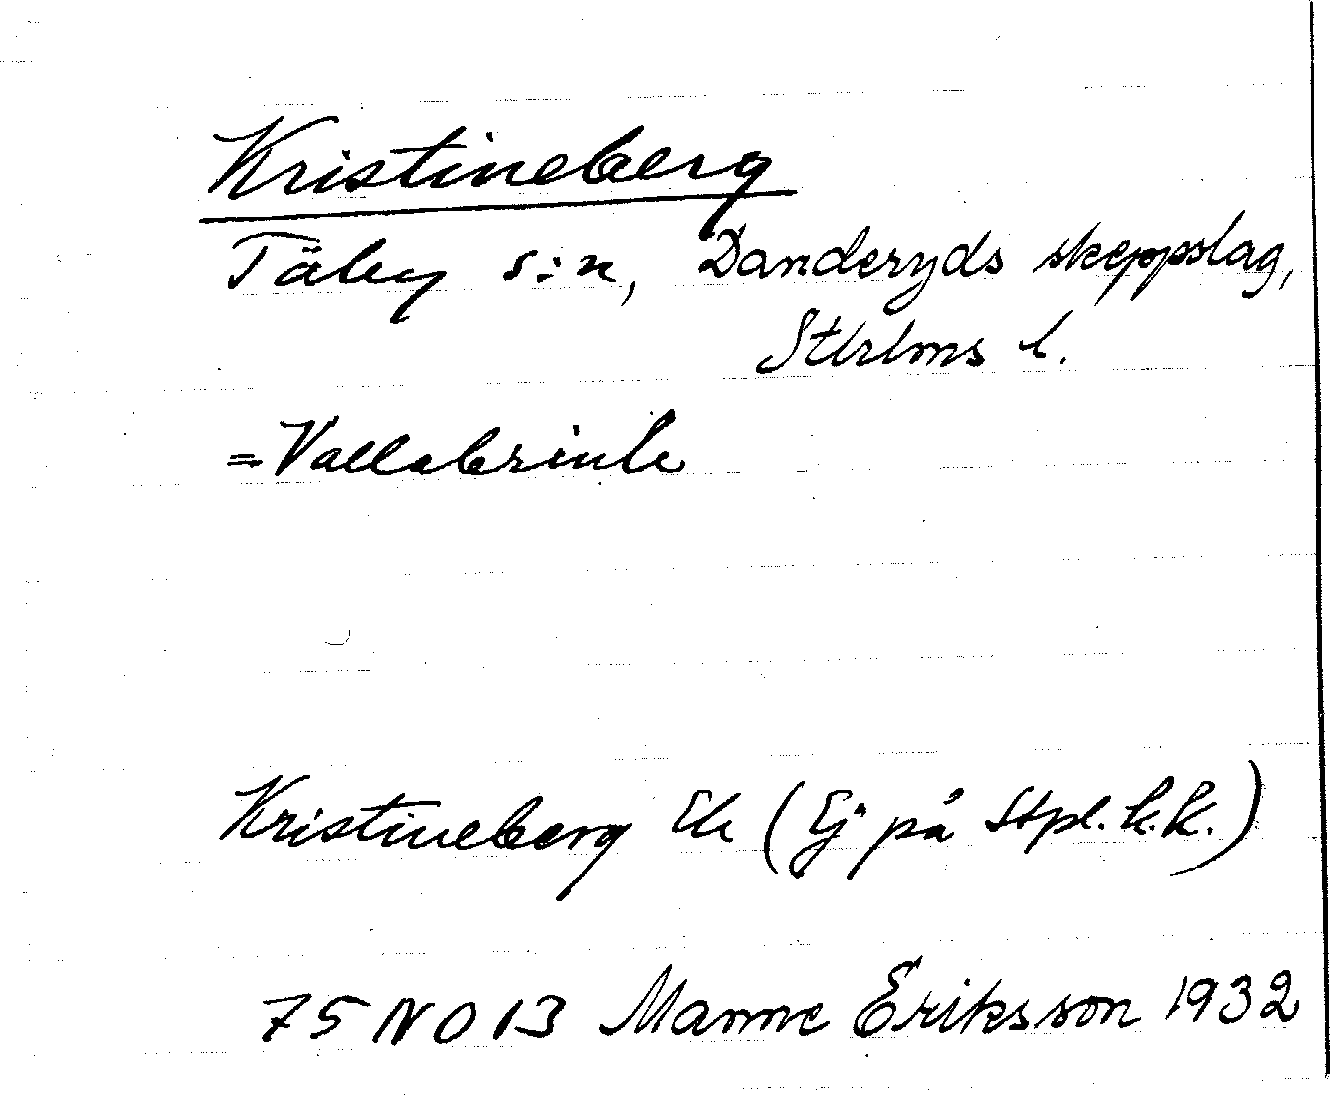 Kristineberg
Täby s:n, Danderyds skeppslag,
Sthlms l.
= Vallabrink
Kristineberg Ek (Ej på Stpl. k.k.)
75 NO 13 Manne Eriksson 1932